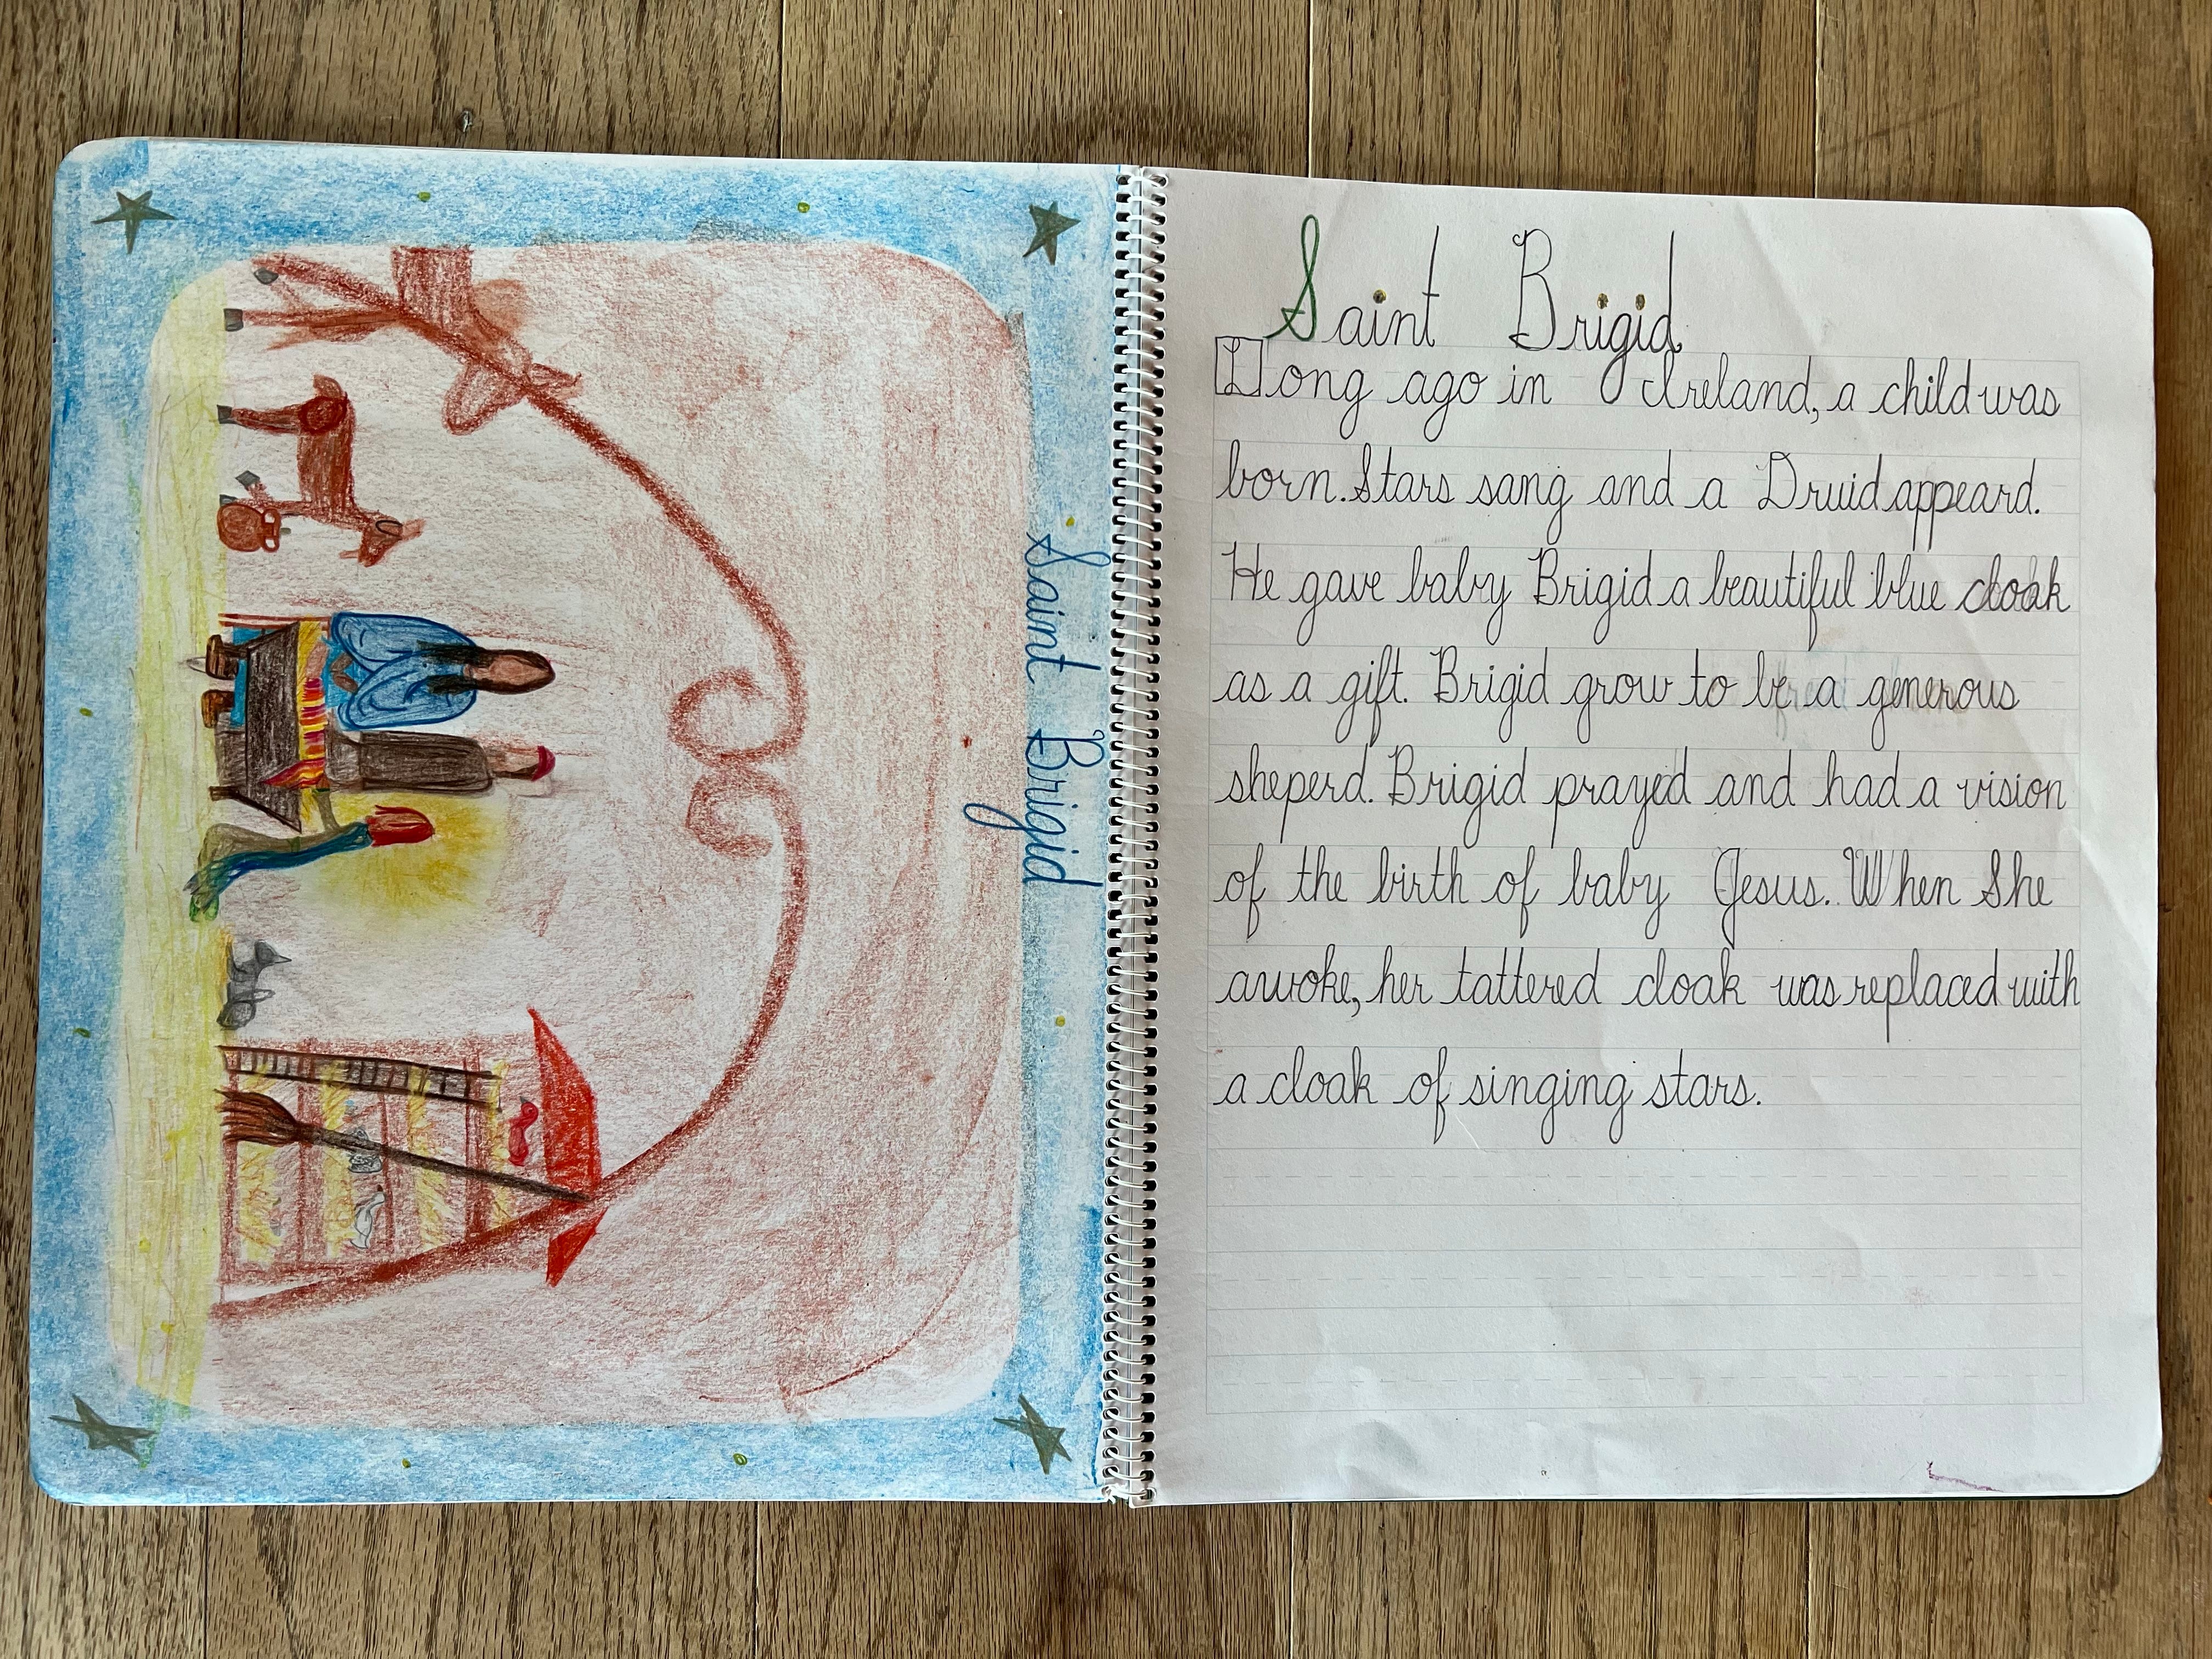 Saint Brigid
Saint Brigid
Long ago in Ireland, a child was
born. Stars sang and a Druid appeard.
He gave baby Brigid a beautiful blue cloak
as a gift. Brigid grow to be a generous
sheperd. Brigid prayed and had a vision
of the birth of baby Jesus. When She
awoke, her tattered cloak was replaced with
a cloak of singing stars.